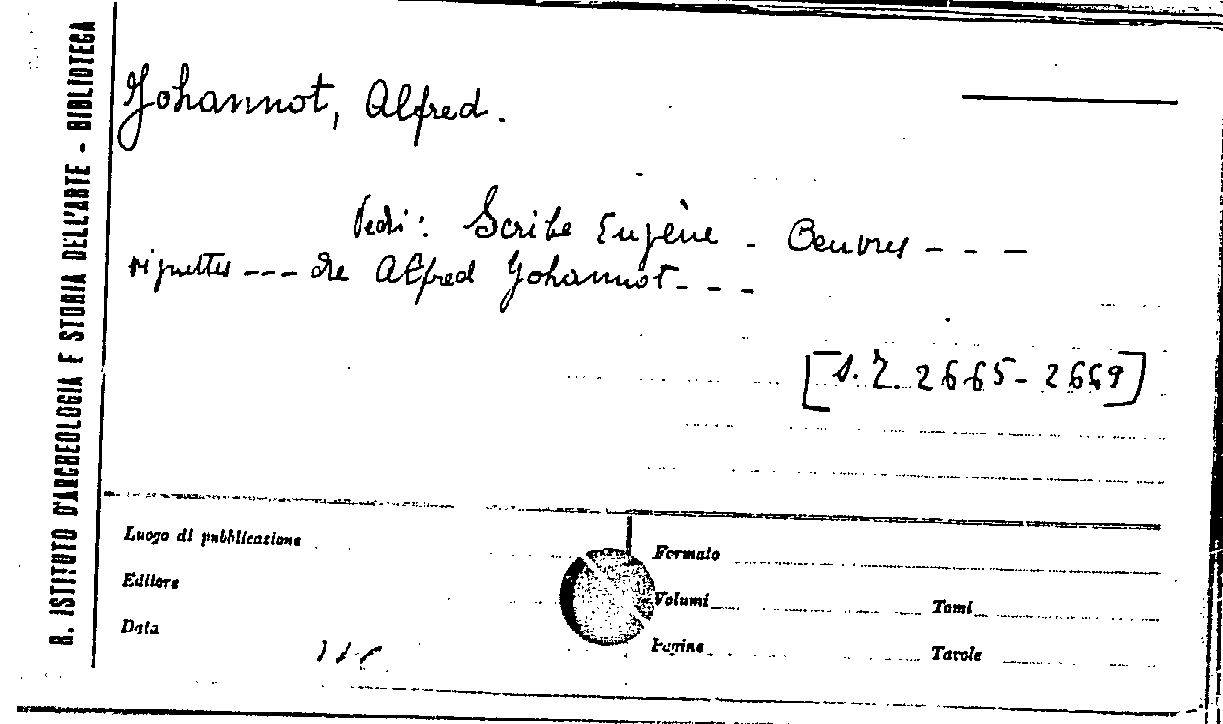 R. ISTITUTO D'ARCHEOLOGIA E STORIA DELL'ARTE - BIBLIOTECA
Johannot, Alfred.
Vedi: Scribe Eugène - Oeuvres - - -
vignettes --- de Alfred Johannot - - -
[s.Z. 2665-2669]
Luogo di pubblicazione
Editore
Data
Formato
Volumi Tomi
Pagine Tavole